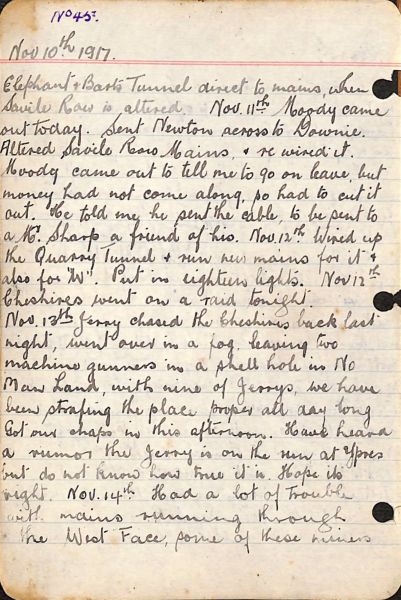 No 45.
Nov 10th 1917.
Elephant & Barts Tunnel direct to mains, when
Savile Row is altered. Nov. 11th Moody came
out today. Sent Newton across to Downie.
Altered Savile Row Mains, & re wired it.
Moody came out to tell me to go on leave, but
money had not come along, so had to cut it
out. He told me he sent the cable, to be sent to
a Mr Sharp a friend of his. Nov. 12th Wired up
the Quarry Tunnel & run new mains for it &
also for "W". Put in eighteen lights. Nov 12th
Cheshires went on a raid tonight
Nov. 13th Jerry chased the Cheshires back last
night, went over in a fog, leaving two
machine gunners in a shell hole in No
Man Land, with nine of Jerrys, we have
been strafing the place proper all day long
Got our chaps in this afternoon. Have heard
a rumor the Jerry is on the run at Ypres
but do not know how true it is. Hope its
right. Nov. 14th Had a lot of trouble
with mains running through
the West Face, some of these miners